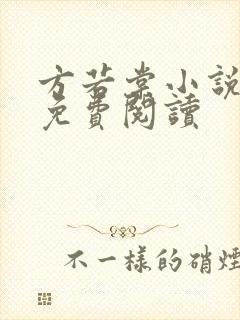 方若棠小說
免費閱讀
不一樣的硝煙